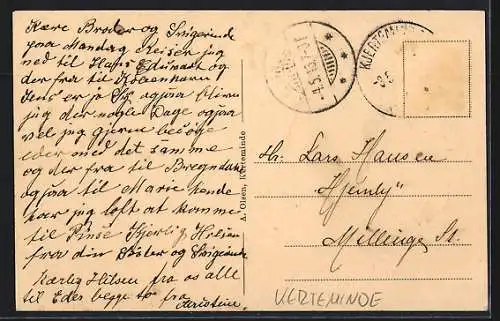 Kære Broder og Svigerinde
paa Mandag Reiser jeg
ned til Hans Eduardt og
der fra til København
Jens er ja syg ogsaa bliver
jeg der nogle Dage ogsaa
vel jeg gjerne besöge
eder med det samme
og der fra til Bregndan
ogsaa til Marie hende
har jeg loft at komme
til Pinse Kjerlig Hilsen
fra din Söster og Svigerinde
Kærlig Hilsen fra os alle
til Eder begge to fra
Kirstine.
A. Olsen, Kerteminde
KJERTEM
Hr. Lars Hansen
"Hjemly"
Millinge St.
KERTEMINDE